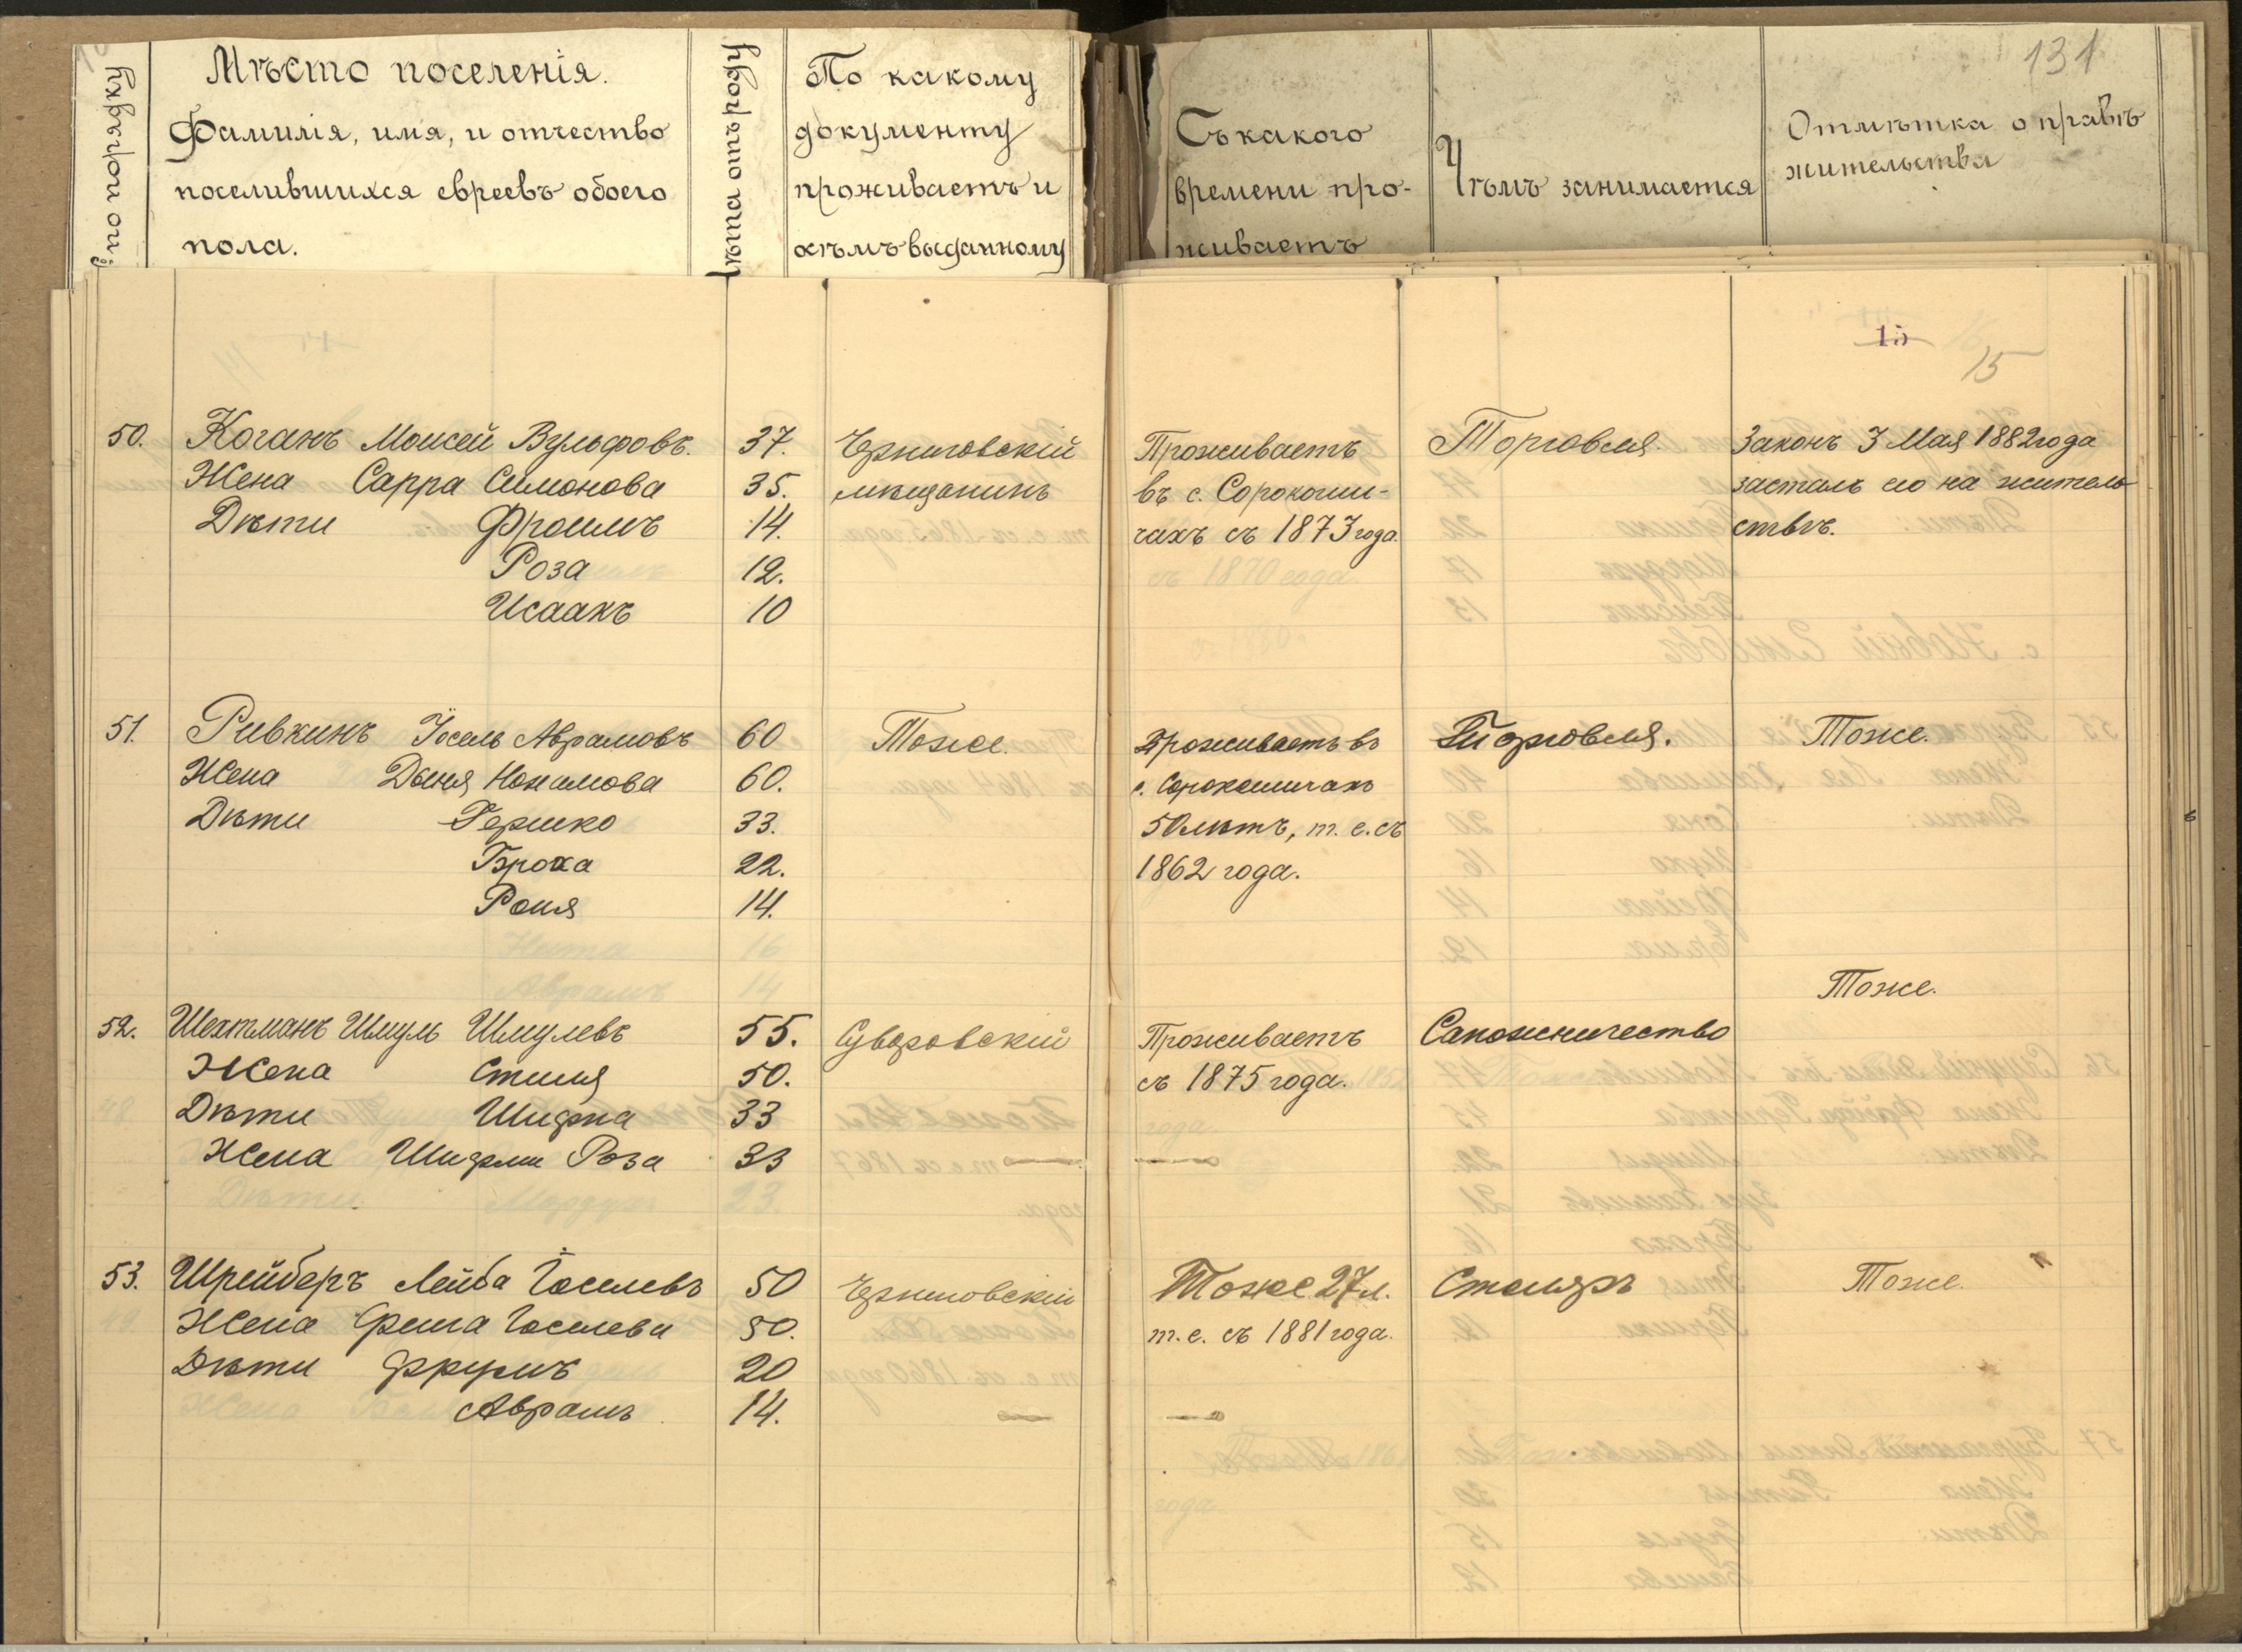 131
№ по порядку
Мѣсто поселенія.
Фамилія, имя, и отчество
поселившихся евреевъ обоего
пола.
Лѣта отъ роду
По какому
документу
проживаетъ и
кѣмъ выданному
Съ какого
времени про-
живаетъ
Чѣмъ занимается
Отмѣтка о правѣ
жительства
15
15
50. Коганъ Моисей Вульфовъ. 37. Черниговскій Проживаетъ Торговля. Законъ 3 Мая 1882 года
Жена Сарра Симонова 35. мѣщанинъ въ с. Сорокоши- засталъ его на житель
Дѣти Фроимъ 14. чахъ съ 1873 года. ствѣ.
Роза 12.
Исаакъ 10
51. Ривкинъ Іосель Аврамовъ 60 Тоже. Проживаетъ въ Торговля. Тоже.
Жена Нохимова 60. с. Сорокошичахъ
Дѣти Гершко 33. 50 лѣтъ, т. е. съ
Броха 22. 1862 года.
Роня 14.
Тоже.
52. Шехтманъ Шмуль Шмулевъ 55. Проживаетъ Сапожничество
Жена 50. съ 1875 года.
Дѣти 33
Жена Роза 33
53. Шрейберъ Лейба Іоселевъ 50 Черниговскій Тоже 27 л. Столяръ Тоже.
Жена Іоселева 50. т. е. съ 1881 года.
Дѣти 20
Аврамъ 14.